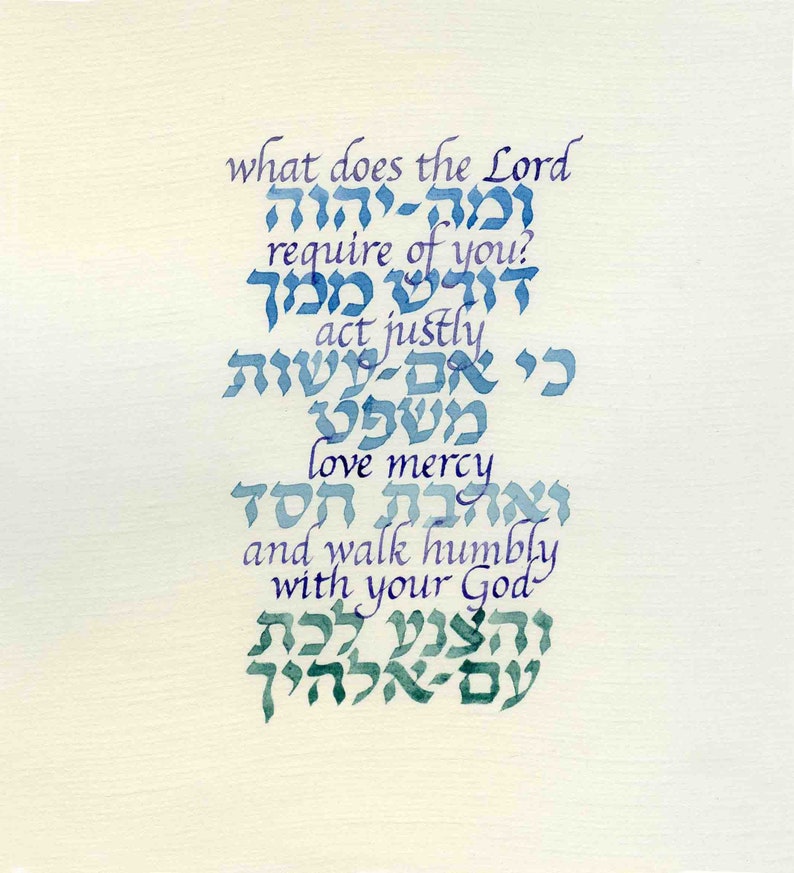 what does the Lord
ומה-יהוה
require of you?
דורש ממך
act justly
כי אם-עשות
משפט
love mercy
ואהבת חסד
and walk humbly
with your God
והצנע לכת
עם-אלהיך